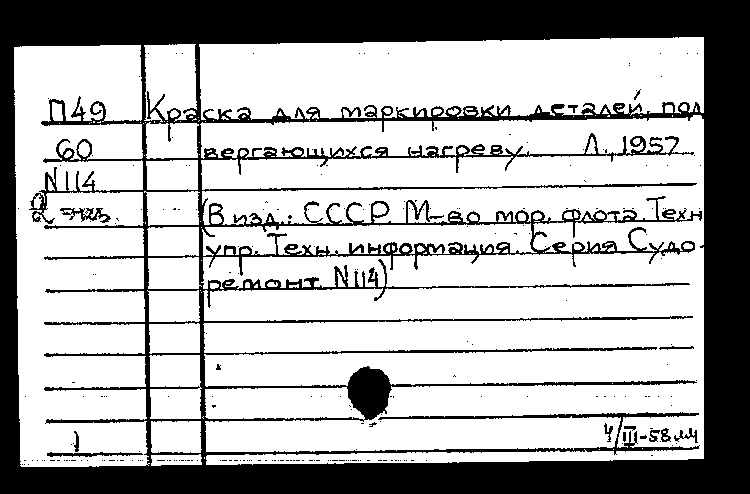 П49 Краска для маркировки деталей, под
60 вергающихся нагреву. Л., 1957
N114
(В изд.: СССР М-во мор. флота. Техн
упр. Техн. информация. Серия Судо-
ремонт N114)
1
4/III-58